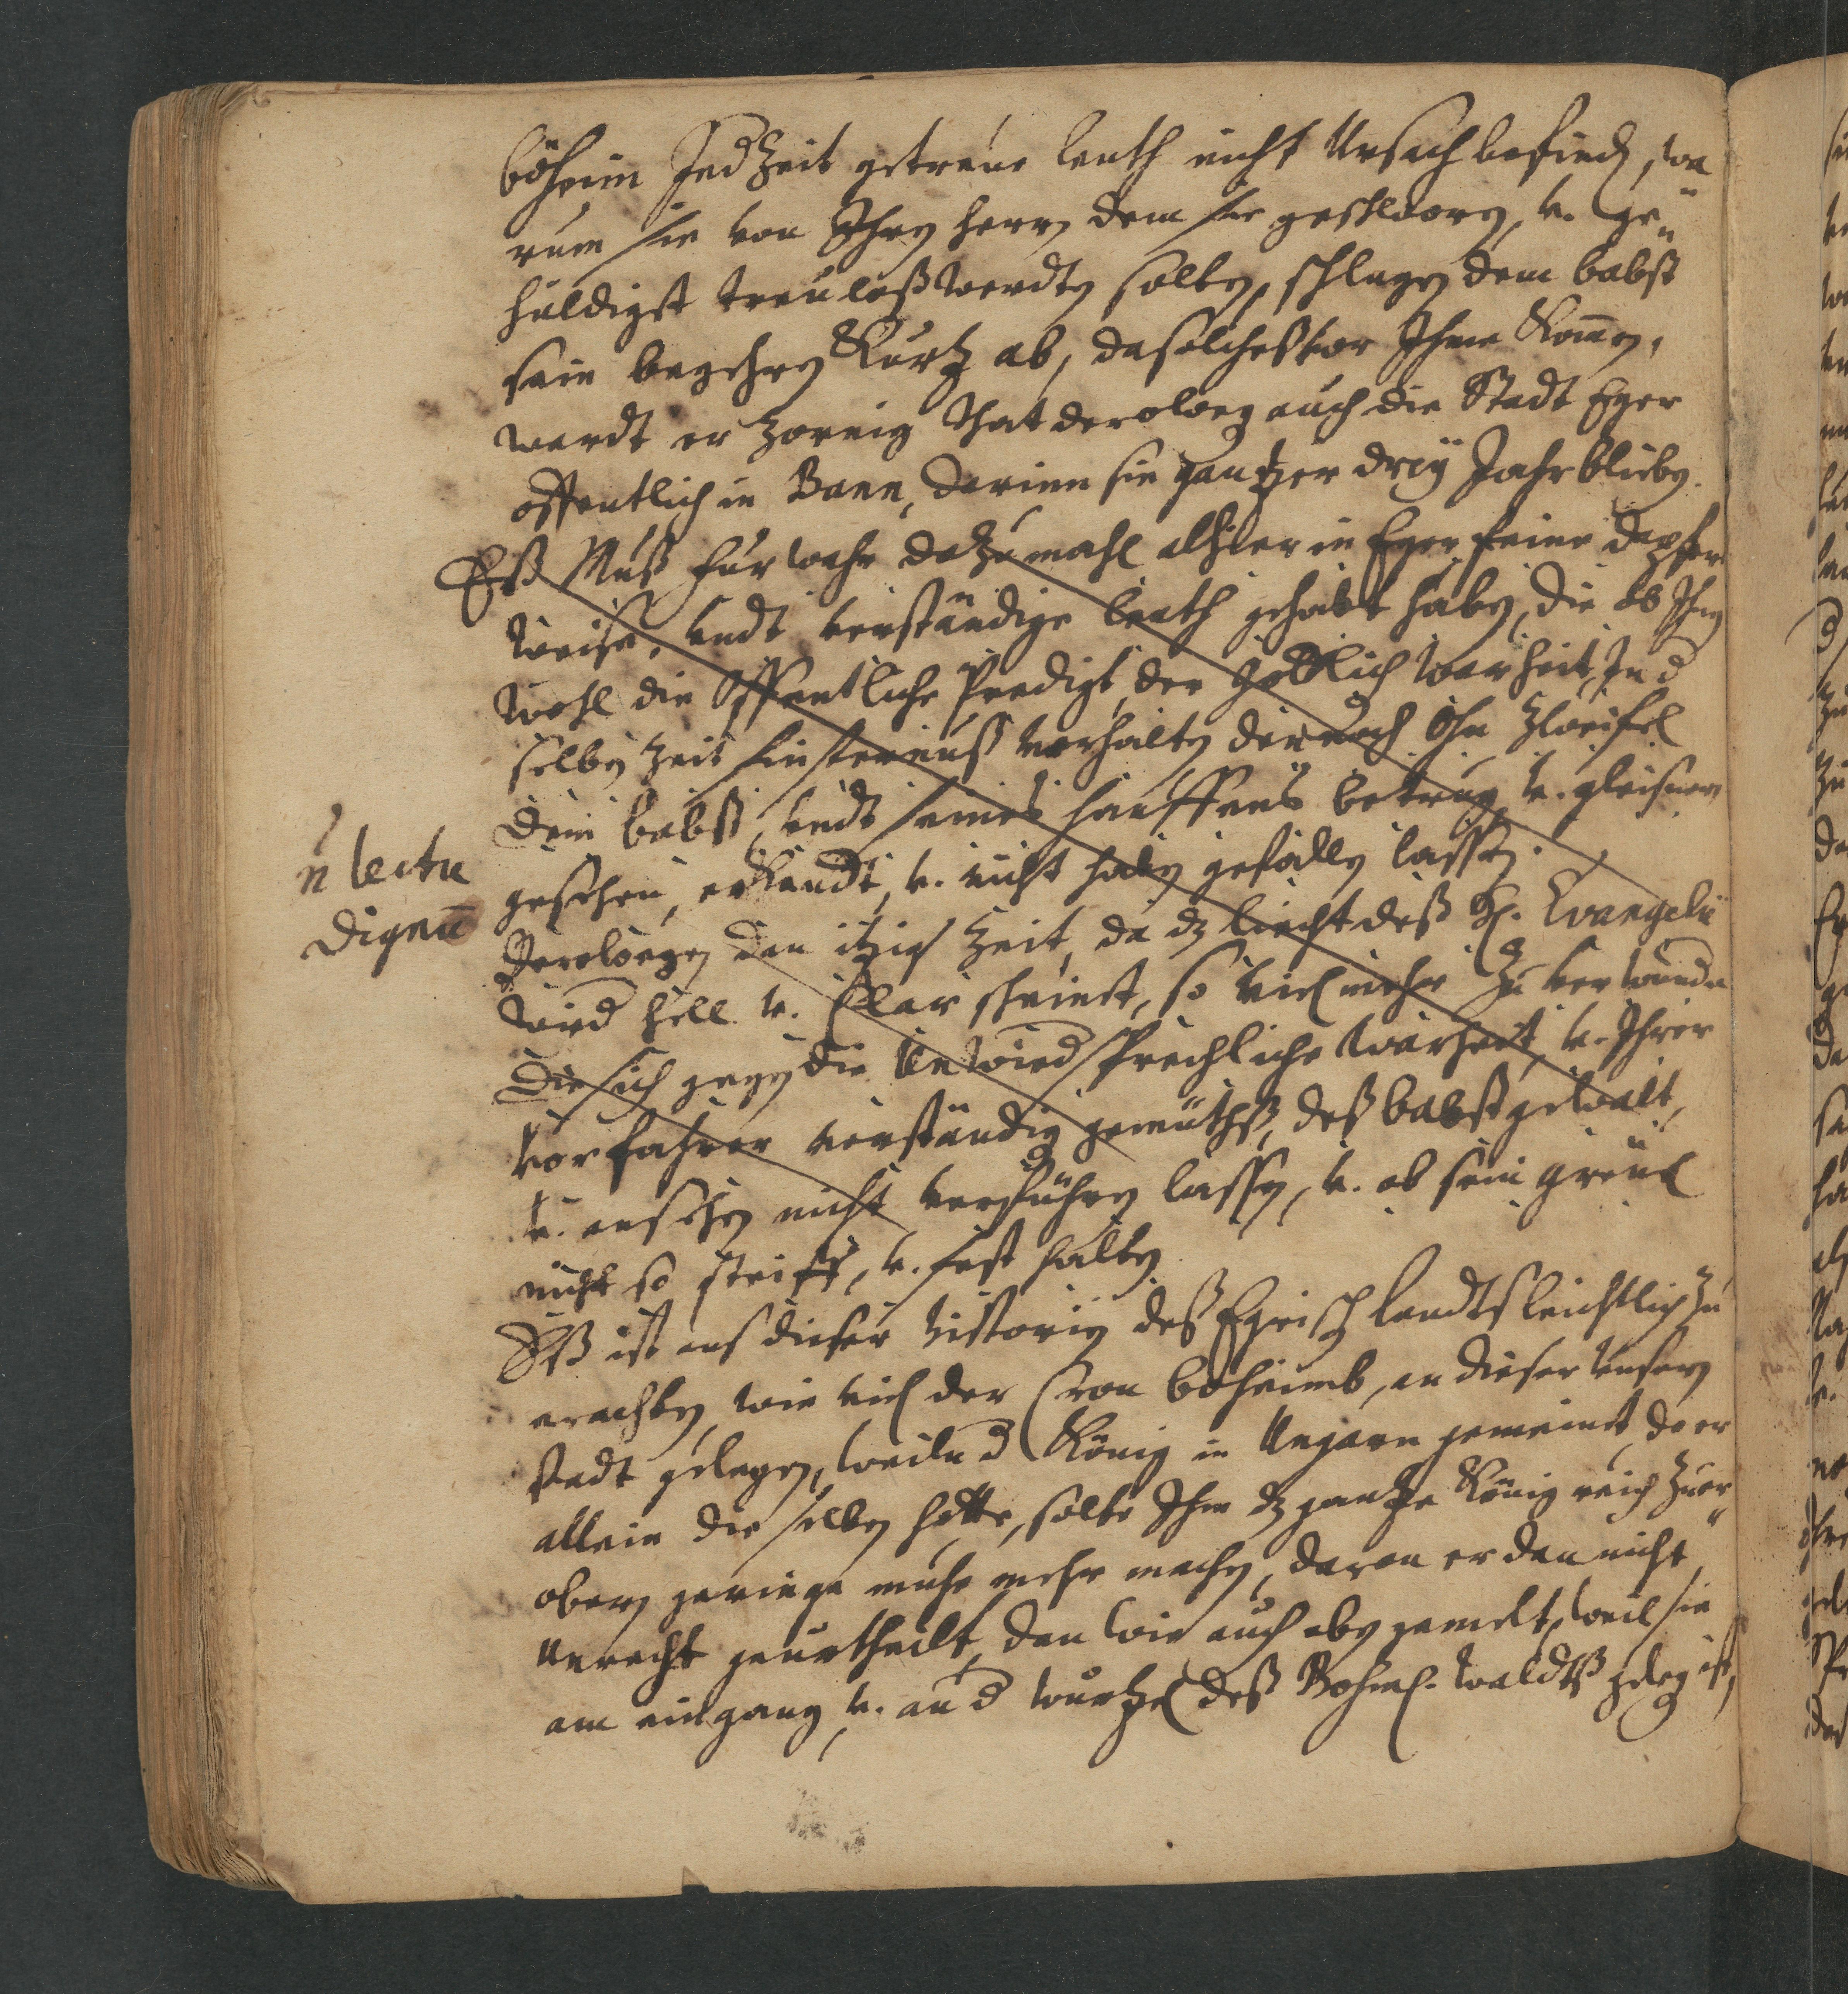 böheim Jed Zeit getreue leuth nicht Ursach befind, wa
rum sie von Ihrn herrn dem sie geschworn, v. ge„
huldigt treuloß werdtn soltn, schlugen dem babst
sein begehrn Kurtz ab, da solches vor Ihme Komen,
wardt er Zornig that derowegn auch die Stadt Eger
offentlich in Bann, darinn sie gantzer dreÿ Jahr bliebn.
Eß Muß fürwahr dazumahl alhier in Eger feine dapfer
weise, undt verständige leuth gehabt habn, die ob Ihn
wohl die öffentliche Predigt, der göttlich warheit, In d
selbn Zeit finsternuß vorhaltn dennoch ohn Zweifel
dem babst, undt seines hauffens betrug, v. gleisner
gesehen, erkandt, v. nicht habn gefalln lassn.
n lectu
dignū
Derowegn den itzig Zeit, da dz liecht deß H. Evangelii
wird hell v. klar scheinet, so viel mehr Zu verwundn
die sich gegn die Unwiedsprechliche warheit, v. Ihrer
Vorfahrer verständig gemüths, deß babst gewalt,
v. ansehn nicht verführn lassn, v. ob sein greuel
nicht so steiff, v. fest haltn
Eß ist aus dieser historien deß Egrisch landts leichtlich Zu
erachtn wie viel der Cron böheimb, an dieser unsern
stadt gelegn, weiln d König in Ungarn gemeint, da er
allein die selbn hette, solte Ihm dz gantze König reich Zuer„
obern geringe mühe mehr machn, daran er dan nicht
Unrecht geurtheilt, dan wie auch obn gemelt, weil sie
am eingang v. an d wurtzel deß Böhm. Waldtß geleg ist,